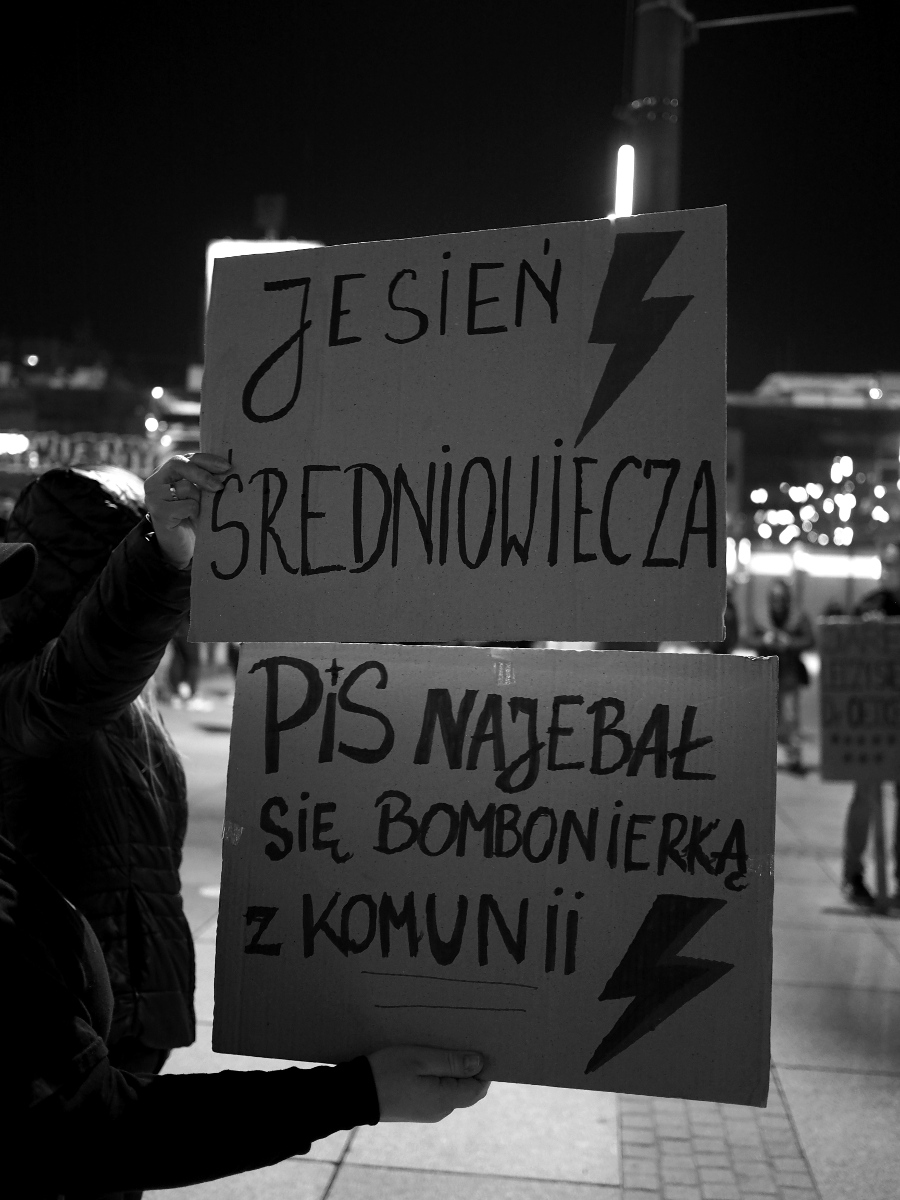 JESIEŃ
ŚREDNIOWIECZA
PiS NAJEBAŁ
SiĘ BOMBONiERKĄ
Z KOMUNii